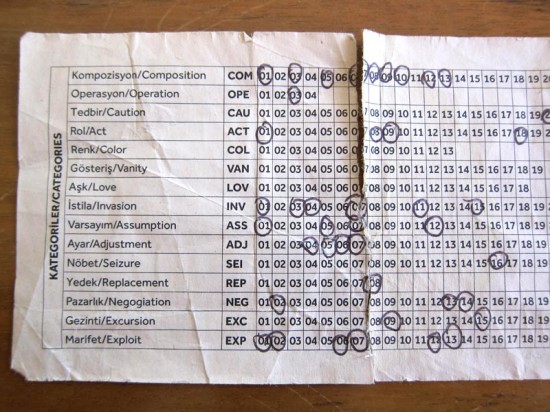 KATEGORİLER/CATEGORIES
Kompozisyon/Composition COM 01 02 03 04 05 06 07 08 09 10 11 12 13 14 15 16 17 18 19
Operasyon/Operation OPE 01 02 03 04
Tedbir/Caution CAU 01 02 03 04 05 06 07 08 09 10 11 12 13 14 15 16 17 18 19
Rol/Act ACT 01 02 03 04 05 06 07 08 09 10 11 12 13 14 15 16 17 18 19
Renk/Color COL 01 02 03 04 05 06 07 08 09 10 11 12 13
Gösteriş/Vanity VAN 01 02 03 04 05 06 07 08 09 10 11 12 13 14 15 16 17 18 19
Aşk/Love LOV 01 02 03 04 05 06 07 08 09 10 11 12 13 14 15 16 17 18
İstila/Invasion INV 01 02 03 04 05 06 07 08 09 10 11 12 13 14 15 16 17 18 19
Varsayım/Assumption ASS 01 02 03 04 05 06 07 08 09 10 11 12 13 14 15 16 17 18 19
Ayar/Adjustment ADJ 01 02 03 04 05 06 07 08 09 10 11 12 13 14 15 16 17 18 19
Nöbet/Seizure SEI 01 02 03 04 05 06 07 08 09 10 11 12 13 14 15 16 17 18 19
Yedek/Replacement REP 01 02 03 04 05 06 07 08 09 10 11 12 13 14 15 16 17 18 19
Pazarlık/Negogiation NEG 01 02 03 04 05 06 07 08 09 10 11 12 13 14 15 16 17 18 19
Gezinti/Excursion EXC 01 02 03 04 05 06 07 08 09 10 11 12 13 14 15 16 17 18 19
Marifet/Exploit EXP 01 02 03 04 05 06 07 08 09 10 11 12 13 14 15 16 17 18 19